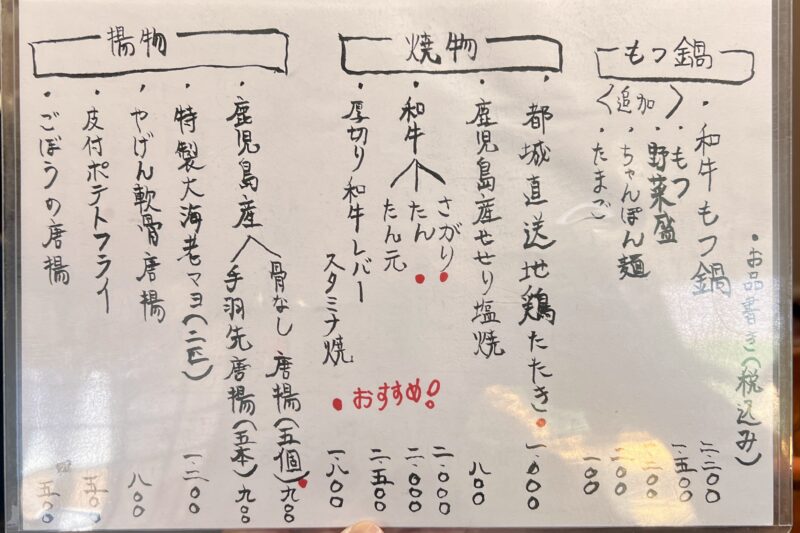 ・お品書き（税込み）
もつ鍋
・和牛もつ鍋 二.二〇〇
〈追加〉
・もつ 一.五〇〇
・野菜盛 〇〇
・ちゃんぽん麺 二〇〇
・たまご 一〇〇
焼物
・都城直送地鶏たたき 一.〇〇〇
・鹿児島産せせり塩焼 八〇〇
・和牛
さがり 二.〇〇〇
たん 二.〇〇〇
たん元 二.五〇〇
・厚切り和牛レバースタミナ焼 一.八〇〇
・おすすめ！
揚物
・鹿児島産
骨なし 唐揚（五個） 九〇〇
手羽先唐揚（五本） 九〇〇
・特製大海老マヨ（二匹） 一.二〇〇
・やげん軟骨唐揚 八〇〇
・皮付ポテトフライ 五〇〇
・ごぼうの唐揚 五〇〇